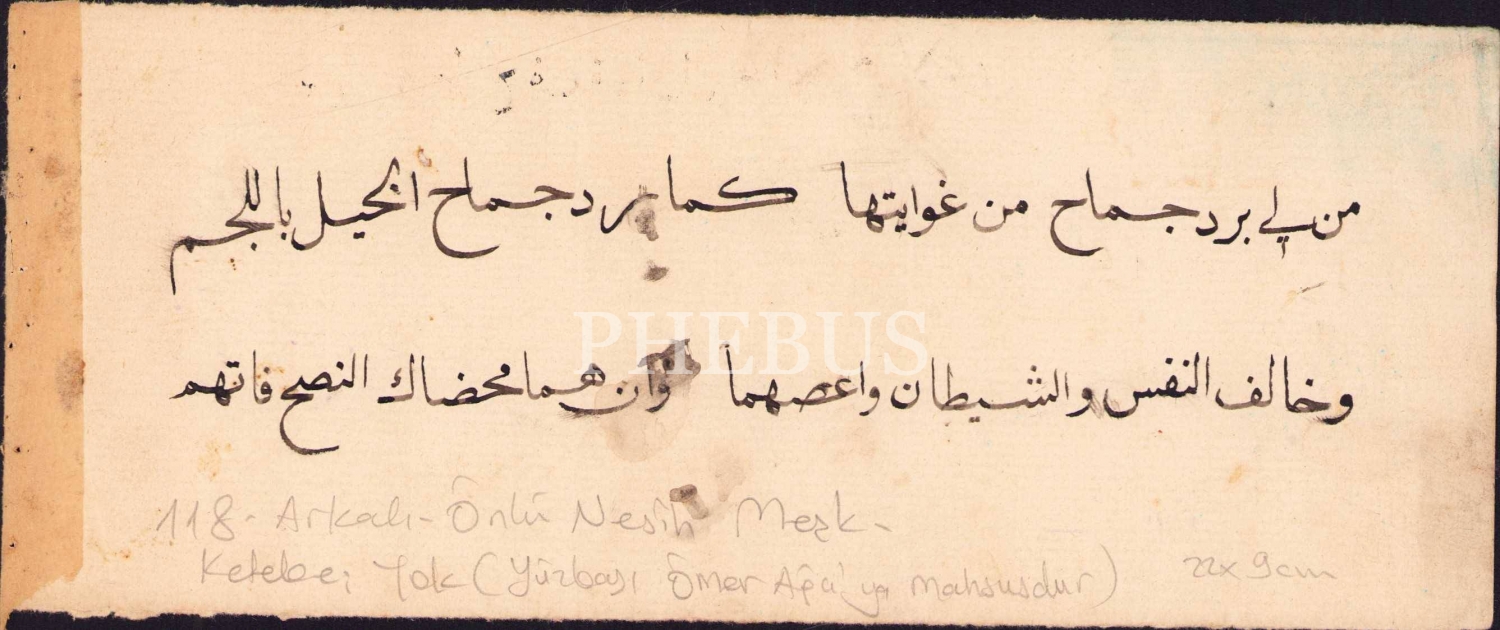 من لي برد جماح من غوايتها كما يرد جماح الخيل باللجم
وخالف النفس والشيطان واعصهما وان هما محضاك النصح فاتهم
PHEBUS
118- Arkalı-Önlü Nesih Meşk-
Ketebe: Yok (Yüzbaşı Ömer Ağa'ya mahsusdur) 22x9cm